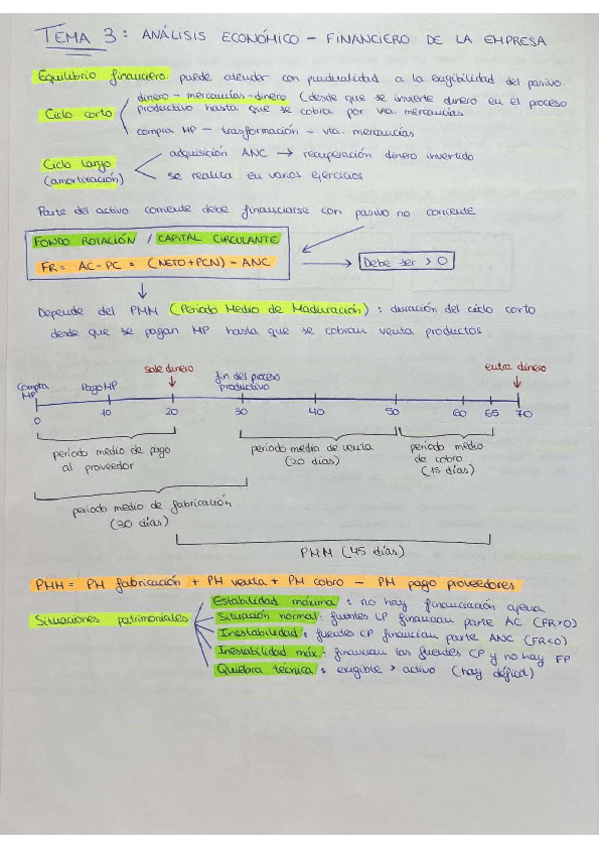 TEMA 3: ANÁLISIS ECONÓMICO - FINANCIERO DE LA EMPRESA
Equilibrio financiero: puede atender con puntualidad a la exigibilidad del pasivo.
Ciclo corto
dinero - mercancías - dinero (desde que se invierte dinero en el proceso
productivo hasta que se cobra por vta. mercancías
compra MP - trasformación - vta. mercancías
Ciclo largo
(amortización)
adquisición ANC → recuperación dinero invertido
se realiza en varios ejercicios
Parte del activo corriente debe financiarse con pasivo no corriente
FONDO ROTACIÓN / CAPITAL CIRCULANTE
FR = AC - PC = (NETO + PCN) - ANC
Debe ser > 0
Depende del PMM (Periodo Medio de Maduración): duración del ciclo corto
desde que se pagan MP hasta que se cobran venta productos.
Compra
MP
Pago MP
sale dinero
fin del proceso
productivo
entra dinero
0 10 20 30 40 50 60 65 70
periodo medio de pago
al proveedor
periodo medio de venta
(20 días)
periodo medio
de cobro
(15 días)
periodo medio de fabricación
(30 días)
PMM (45 días)
PMM = PM fabricación + PM venta + PM cobro - PM pago proveedores
Situaciones patrimoniales
Estabilidad máxima: no hay financiación ajena
Situación normal: fuentes LP financian parte AC (FR>0)
Inestabilidad: fuentes CP financian parte ANC (FR<0)
Inestabilidad máx.: financian las fuentes CP y no hay FP
Quiebra técnica: exigible > activo (hay déficit)